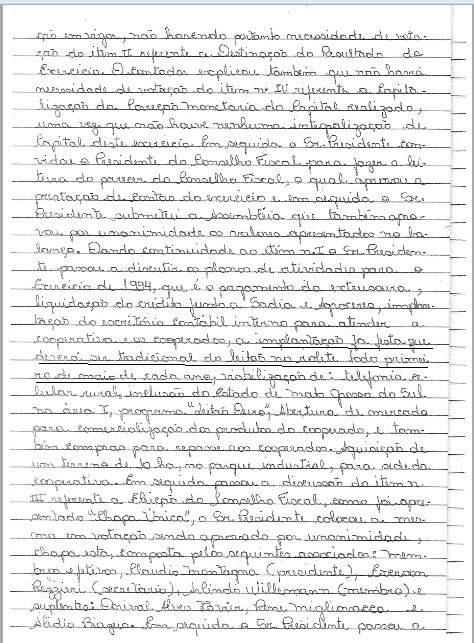 ção em vigor, não havendo portanto necessidade de vota-
ção do item II referente a Destinação do Resultado do
Exercício. O contador explicou também que não havia
necessidade de votação do item nº IV referente a Capita-
lização da Correção monetaria do Capital realizado,
uma vez que não houve nenhuma integralização de
Capital deste exercício. Em seguida o Sr. Presidente con-
vidou o Presidente do Conselho Fiscal para fazer a lei-
tura do parecer do Conselho Fiscal, o qual aprovou a
prestação de contas do exercício e em seguida o Sr.
Presidente submeteu a Assembléia que também apro-
vou por unanimidade os valores apresentados no ba-
lanço. Dando continuidade ao item n. I o Sr. Presiden-
te passou a discutir os planos de atividades para o
Exercício de 1994, que é o pagamento da extrusora,
liquidação do crédito junto a Sadia e Agroceres, implan-
tação do escritório contábil interno para atender a
cooperativa e os cooperados, a implantação da festa que
deverá ser tradicional do leitão no rolete todo primei-
ro de maio de cada ano, viabilização de: telefonia ce-
lular rural, inclusão do Estado de Mato Grosso do Sul
na área I, programa "leitão Ouro", Abertura de mercado
para comercialização dos produtos do cooperado, e tam-
bém compras para repasse aos cooperados. Aquisição de
um terreno de 10 ha, no parque industrial, para sede da
cooperativa. Em seguida passou a discussão do item n.
III referente a Eleição do Conselho Fiscal, como foi apre-
sentado "Chapa Única", o Sr. Presidente colocou a mes-
ma em votação sendo aprovado por unanimidade,
chapa esta, composta pelos seguintes associados: mem-
bros efetivos, Claudio Montagna (presidente), Everson
(secretario), Arlindo Willemann (membro) e
suplentos: Alves e
Em seguida o Sr. Presidente passou a